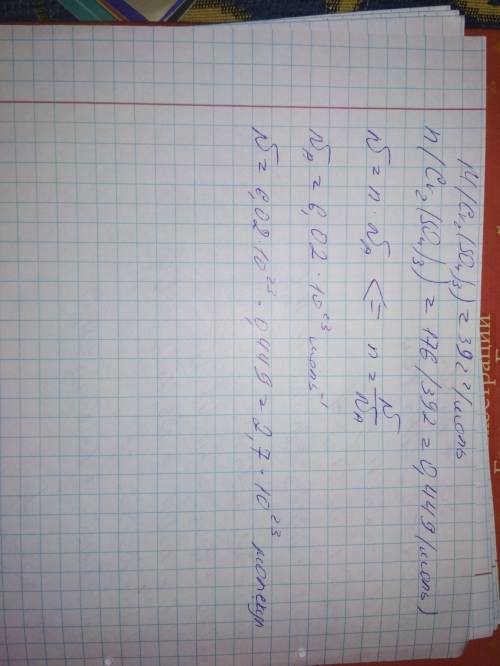 M(Cr₂(SO₄)₃) = 392 г/моль
n(Cr₂(SO₄)₃) = 176/392 = 0,449 (моль)
N = n · Nₐ <= n = N/Nₐ
Nₐ = 6,02 · 10²³ моль⁻¹
N = 6,02 · 10²³ · 0,449 = 2,7 · 10²³ молекул